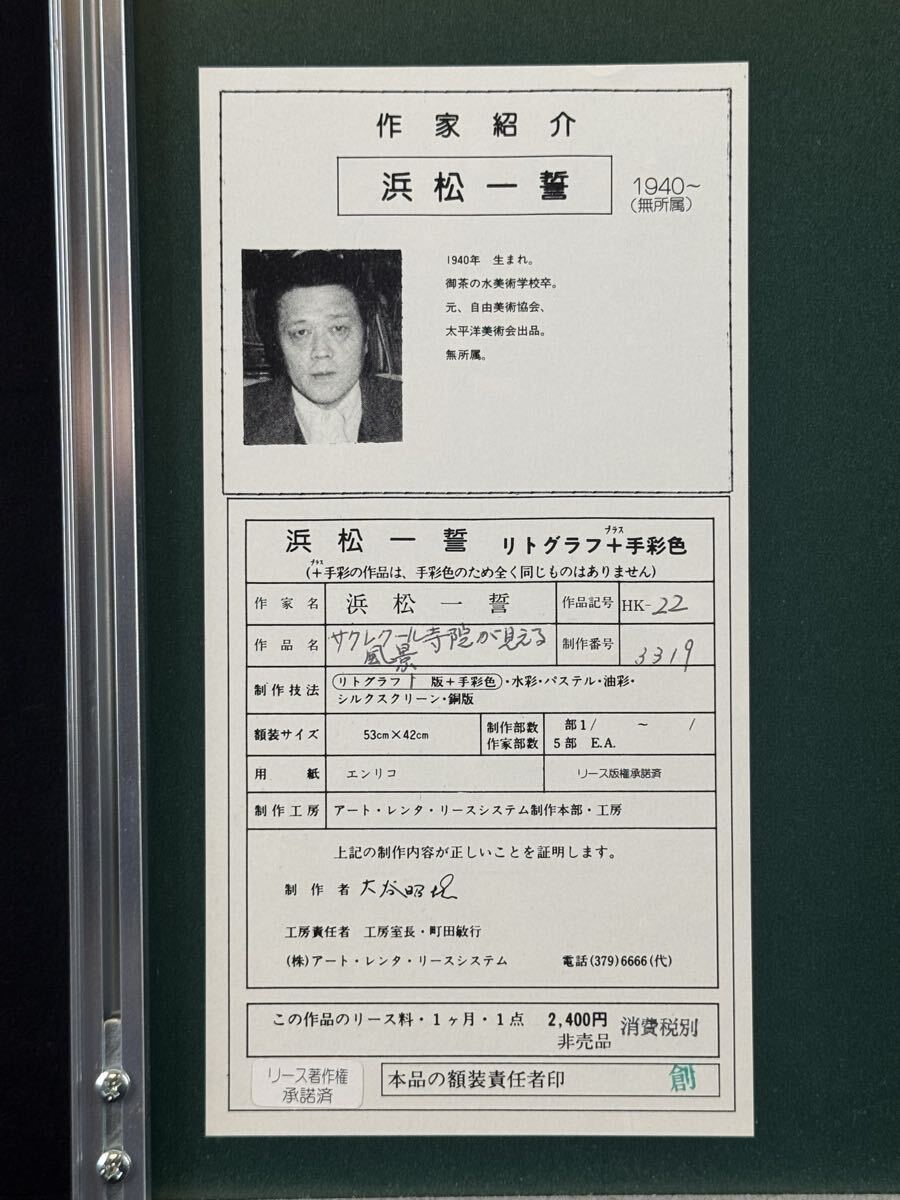 作家紹介
浜松一誓
1940~
(無所属)
1940年 生まれ。
御茶の水美術学校卒。
元、自由美術協会、
太平洋美術会出品。
無所属。
浜松一誓 リトグラフ+手彩色
プラス
(+手彩の作品は、手彩色のため全く同じものはありません)
プラス
作家名 浜松一誓 作品記号 HK-22
作品名 サクレクール寺院が見える風景 制作番号 3319
制作技法 リトグラフ 1 版+手彩色・水彩・パステル・油彩・
シルクスクリーン・銅版
額装サイズ 53cm×42cm 制作部数 部1/ ~ /
作家部数 5部 E.A.
用紙 エンリコ リース版権承諾済
制作工房 アート・レンタ・リースシステム制作本部・工房
上記の制作内容が正しいことを証明します。
制作者 大谷昭
工房責任者 工房室長・町田敏行
(株)アート・レンタ・リースシステム 電話(379)6666(代)
この作品のリース料・1ヶ月・1点 2,400円 消費税別
非売品
リース著作権
承諾済
本品の額装責任者印 創